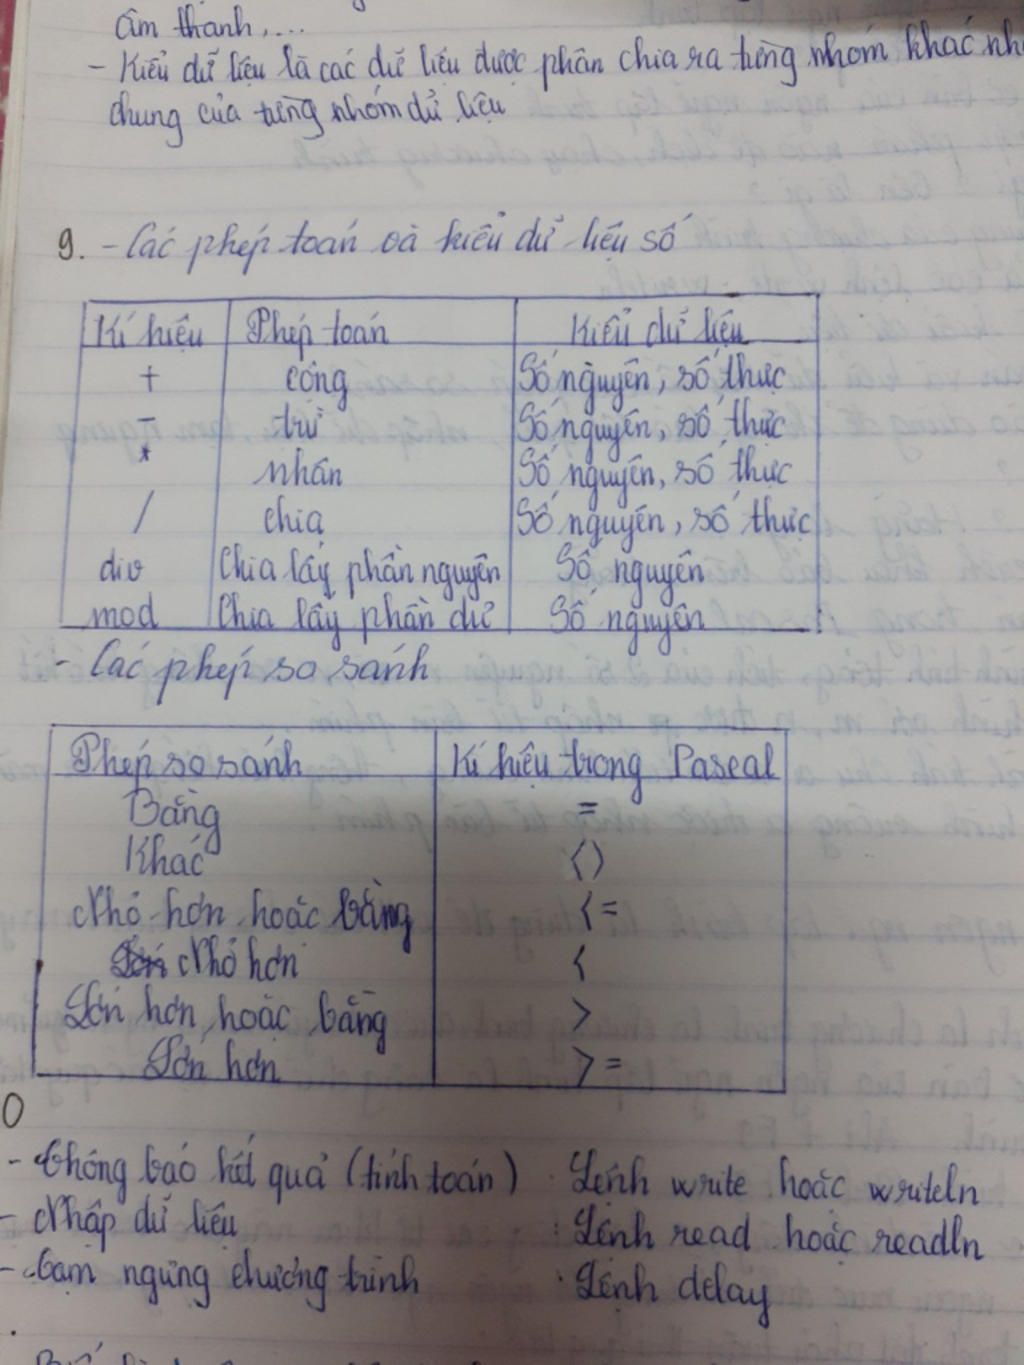 âm thanh,...
- Kiểu dữ liệu là các dữ liệu được phân chia ra từng nhóm khác nh
chung của từng nhóm dữ liệu
9. - Các phép toán và kiểu dữ liệu số
Kí hiệu Phép toán Kiểu dữ liệu
+ cộng Số nguyên, số thực
- trừ Số nguyên, số thực
* nhân Số nguyên, số thực
/ chia Số nguyên, số thực
div Chia lấy phần nguyên Số nguyên
mod Chia lấy phần dư Số nguyên
- Các phép so sánh
Phép so sánh Kí hiệu trong Pascal
Bằng =
Khác <>
Nhỏ hơn hoặc bằng <=
Nhỏ hơn <
Lớn hơn hoặc bằng >
Lớn hơn >=
0
- Thông báo kết quả (tính toán) : Lệnh write hoặc writeln
- Nhập dữ liệu : Lệnh read hoặc readln
- Tạm ngừng chương trình : Lệnh delay